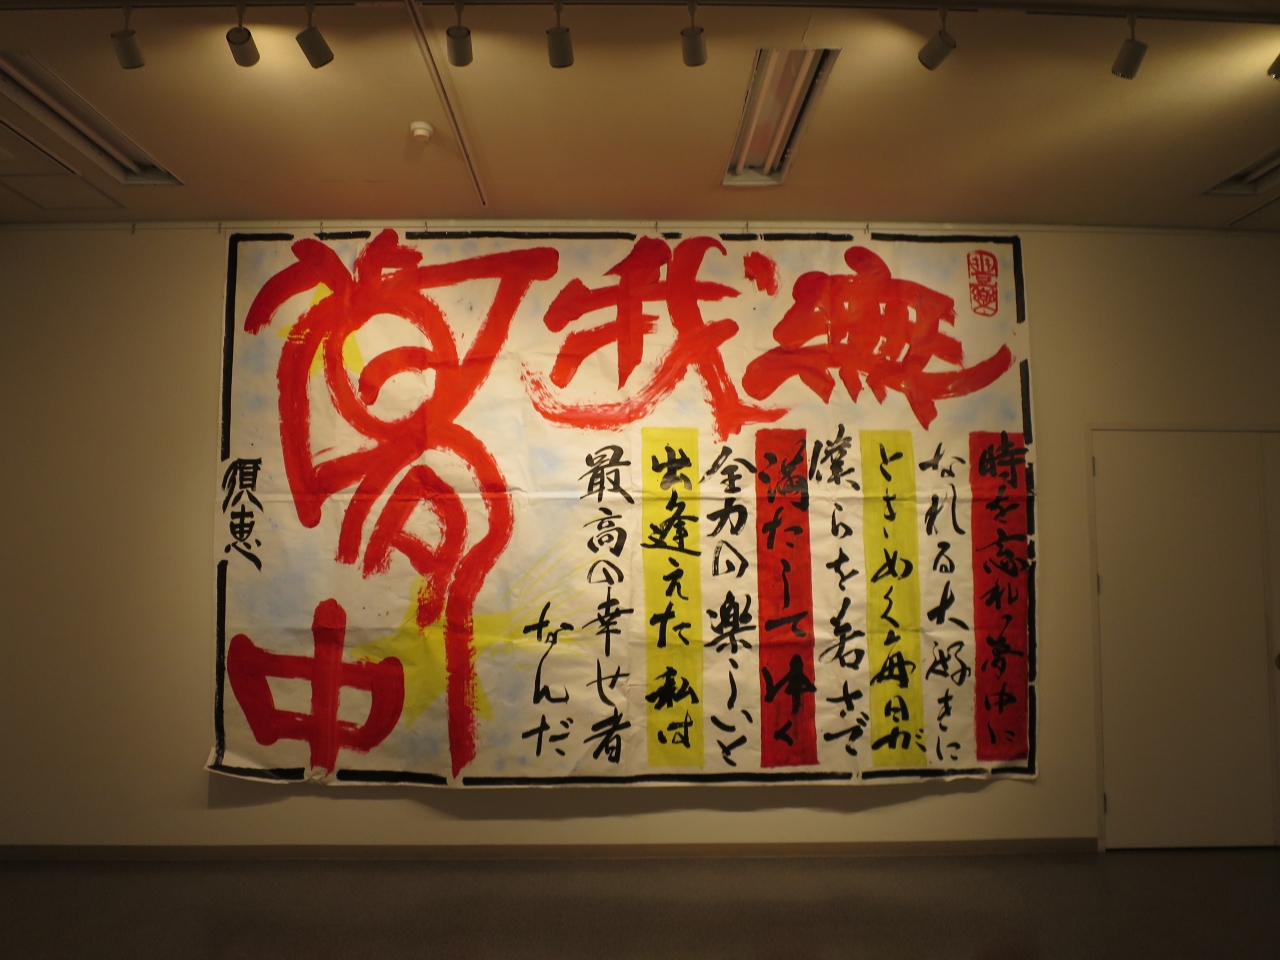 無我夢中
時を忘れ夢中に
なれる大好きに
ときめく毎日が
僕らを若さで
満たしてゆく
全力の楽しいと
出逢えた私は
最高の幸せ者
なんだ